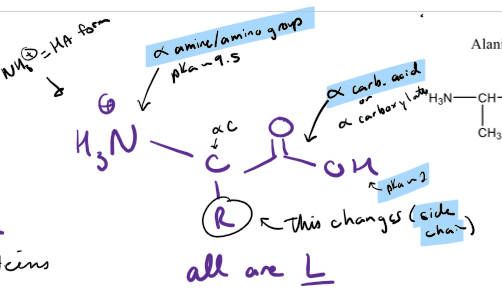 NH₃⊕ = HA form
α amine/amino group
pKa ~ 9.5
Alani
α carb. acid
or
α carboxylate
H₂N—CH-
CH₃
⊕
H₃N
αC
C
O
OH
pKa ~ 2
R
This changes (side
chain)
teins
all are L